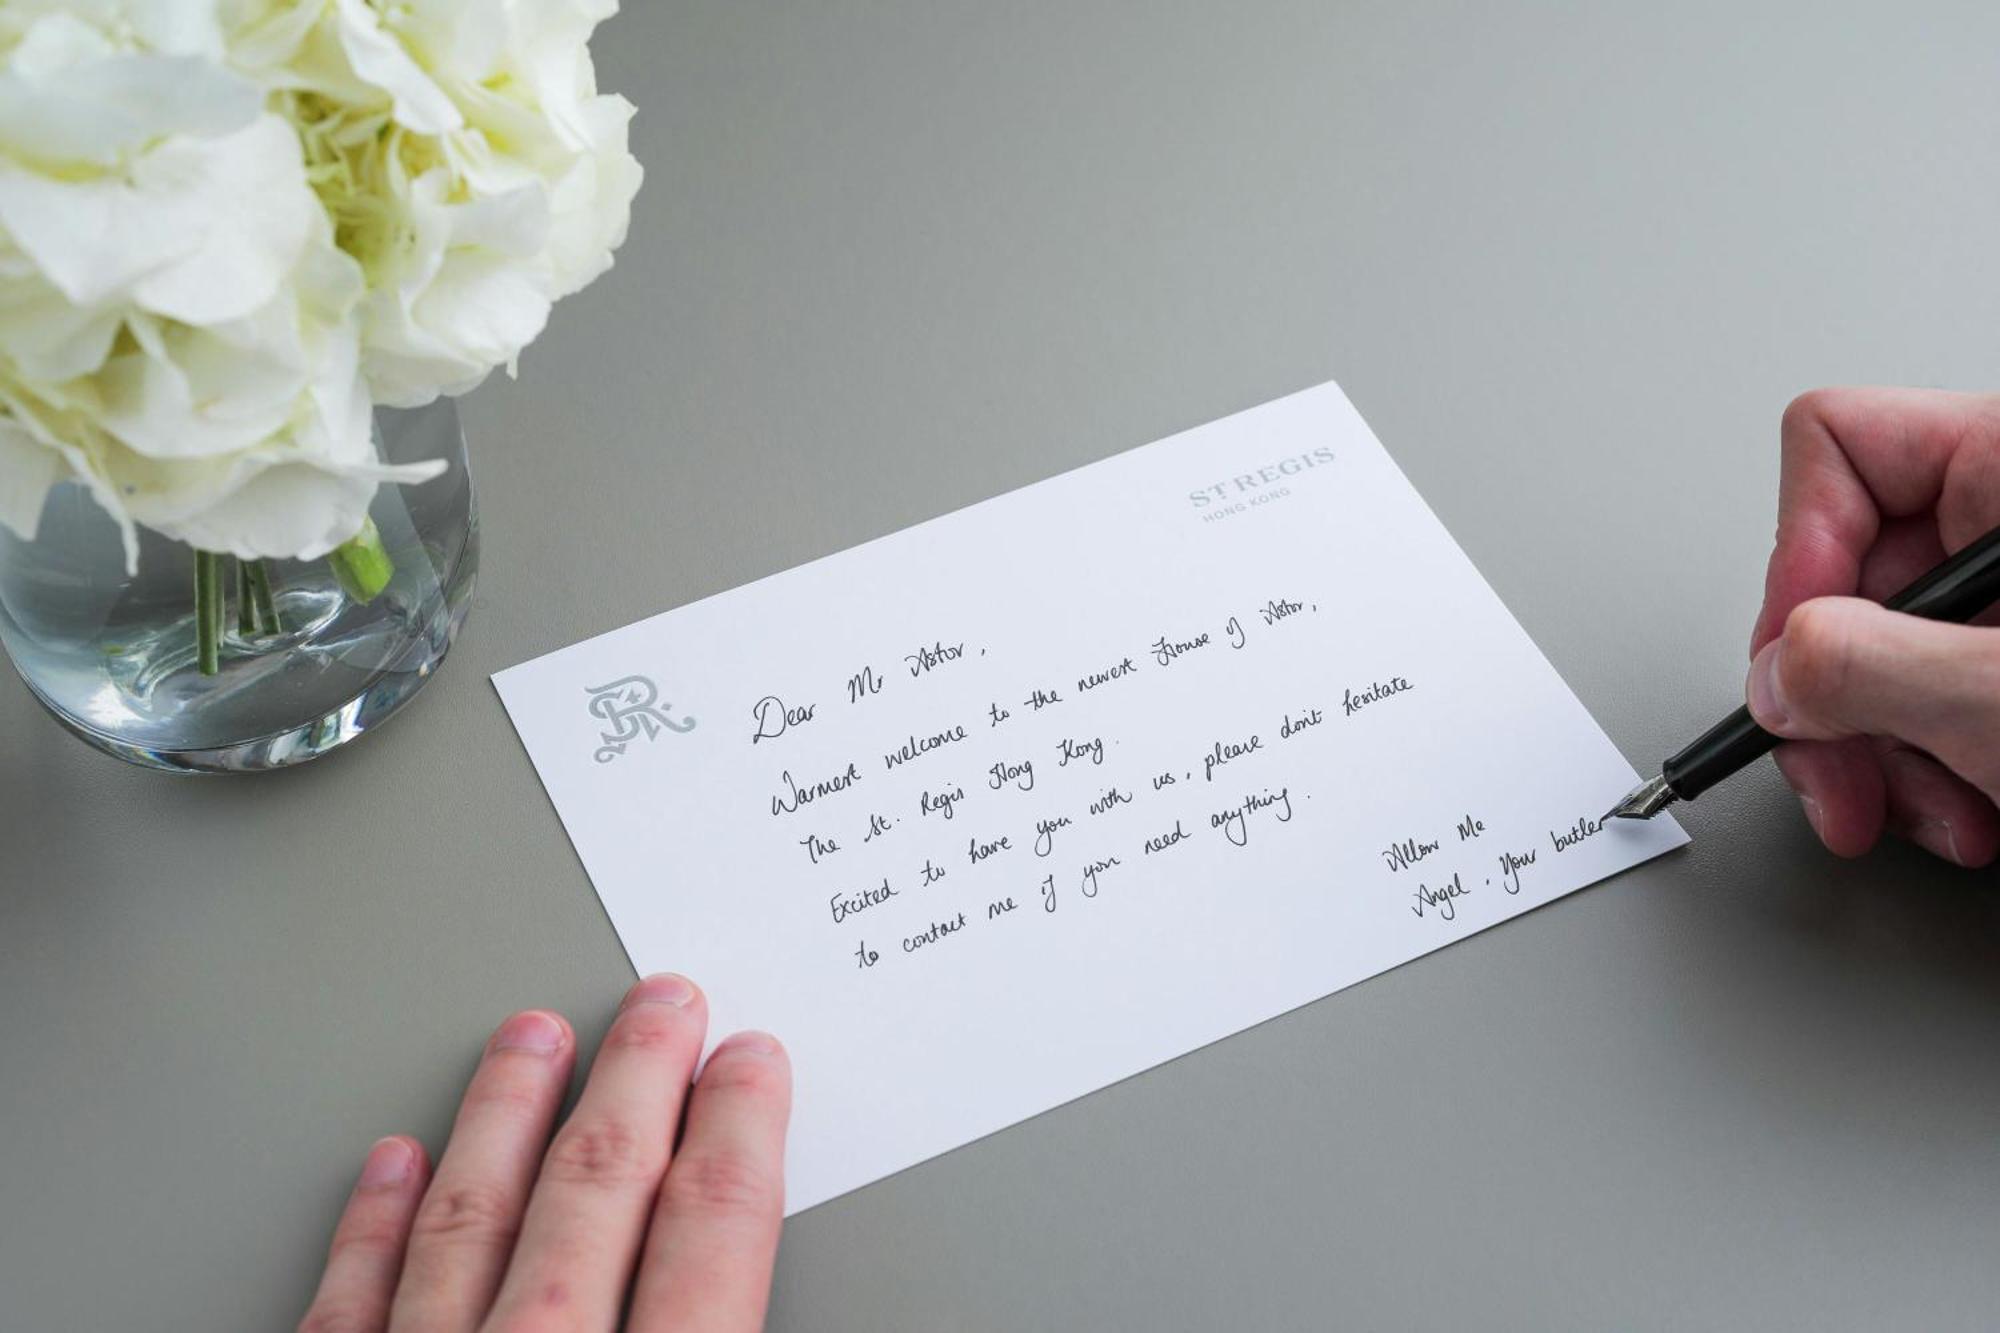 ST REGIS
HONG KONG
SR
Dear Mr Astor,
Warmest welcome to the newest House of Astor,
The St. Regis Hong Kong.
Excited to have you with us, please don't hesitate
to contact me if you need anything.
Allow Me
Angel, Your butler